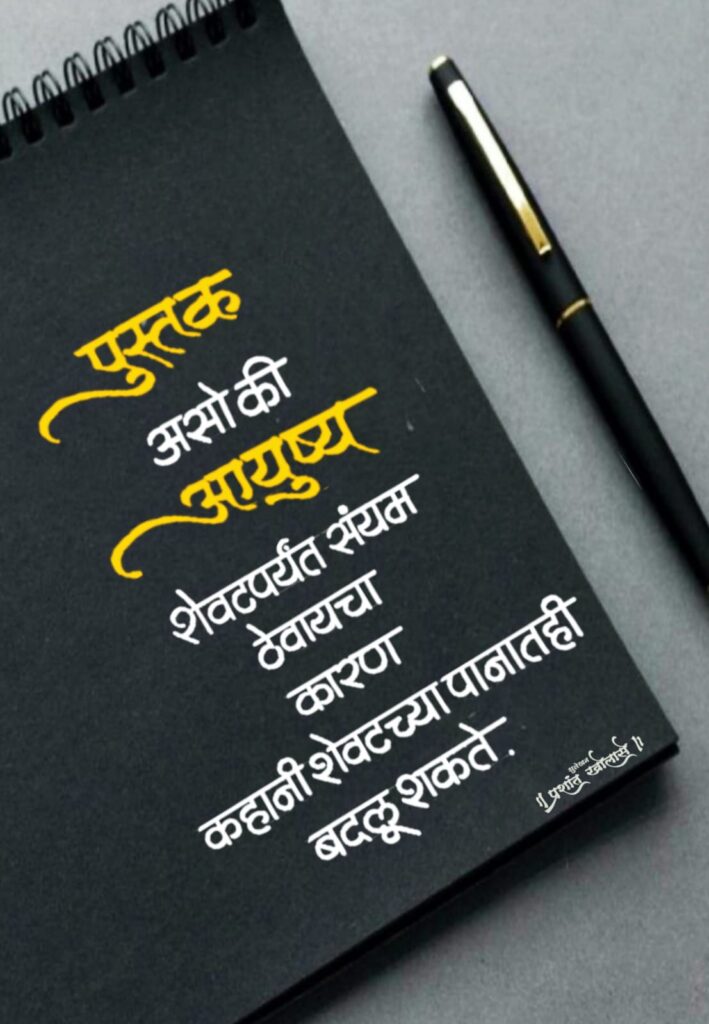 पुस्तक
असो की
आयुष्य
शेवटपर्यंत संयम
ठेवायचा
कारण
कहानी शेवटच्या पानातही
बदलू शकते .
॥ प्रशांत खोलासे ॥